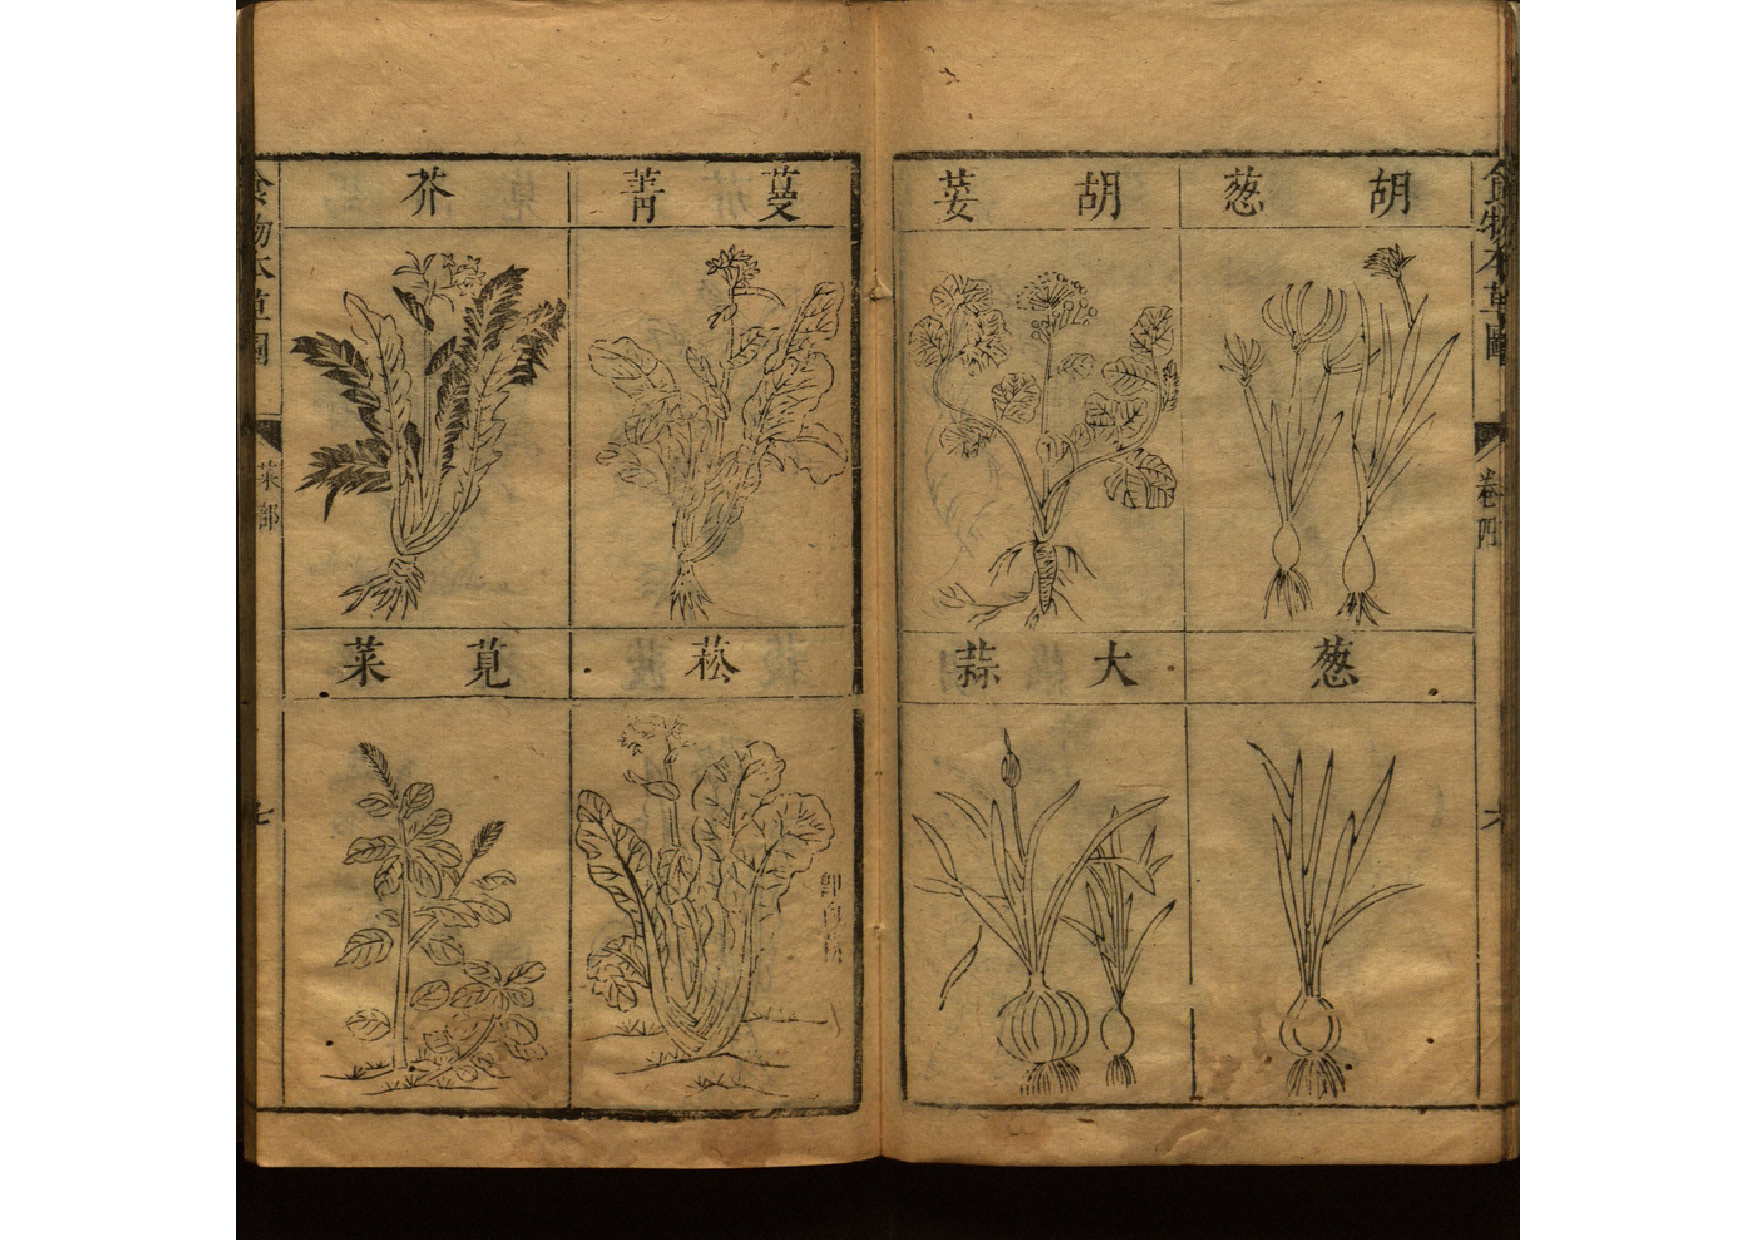 食物本草圖
卷四
六
胡葱
胡荽
葱
大蒜
蔓菁
芥
菘
即白菘
莧菜
食物本草圖
菜部
七